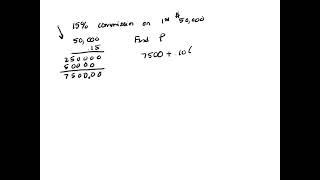 15% commission on 1st $50,000
50,000
.15
250000
50000
7500.00
Find P
7500 + .10(